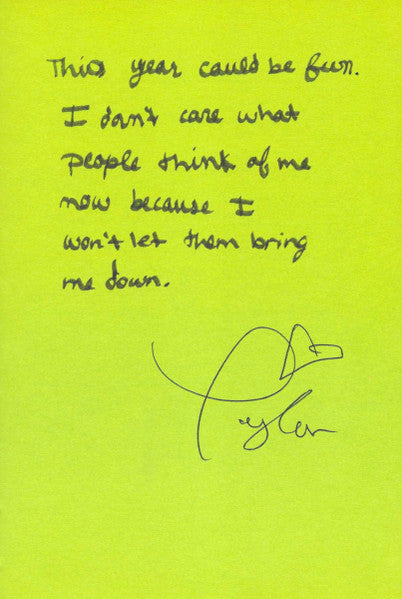 This year could be fun.
I don't care what
people think of me
now because I
won't let them bring
me down.
Taylor